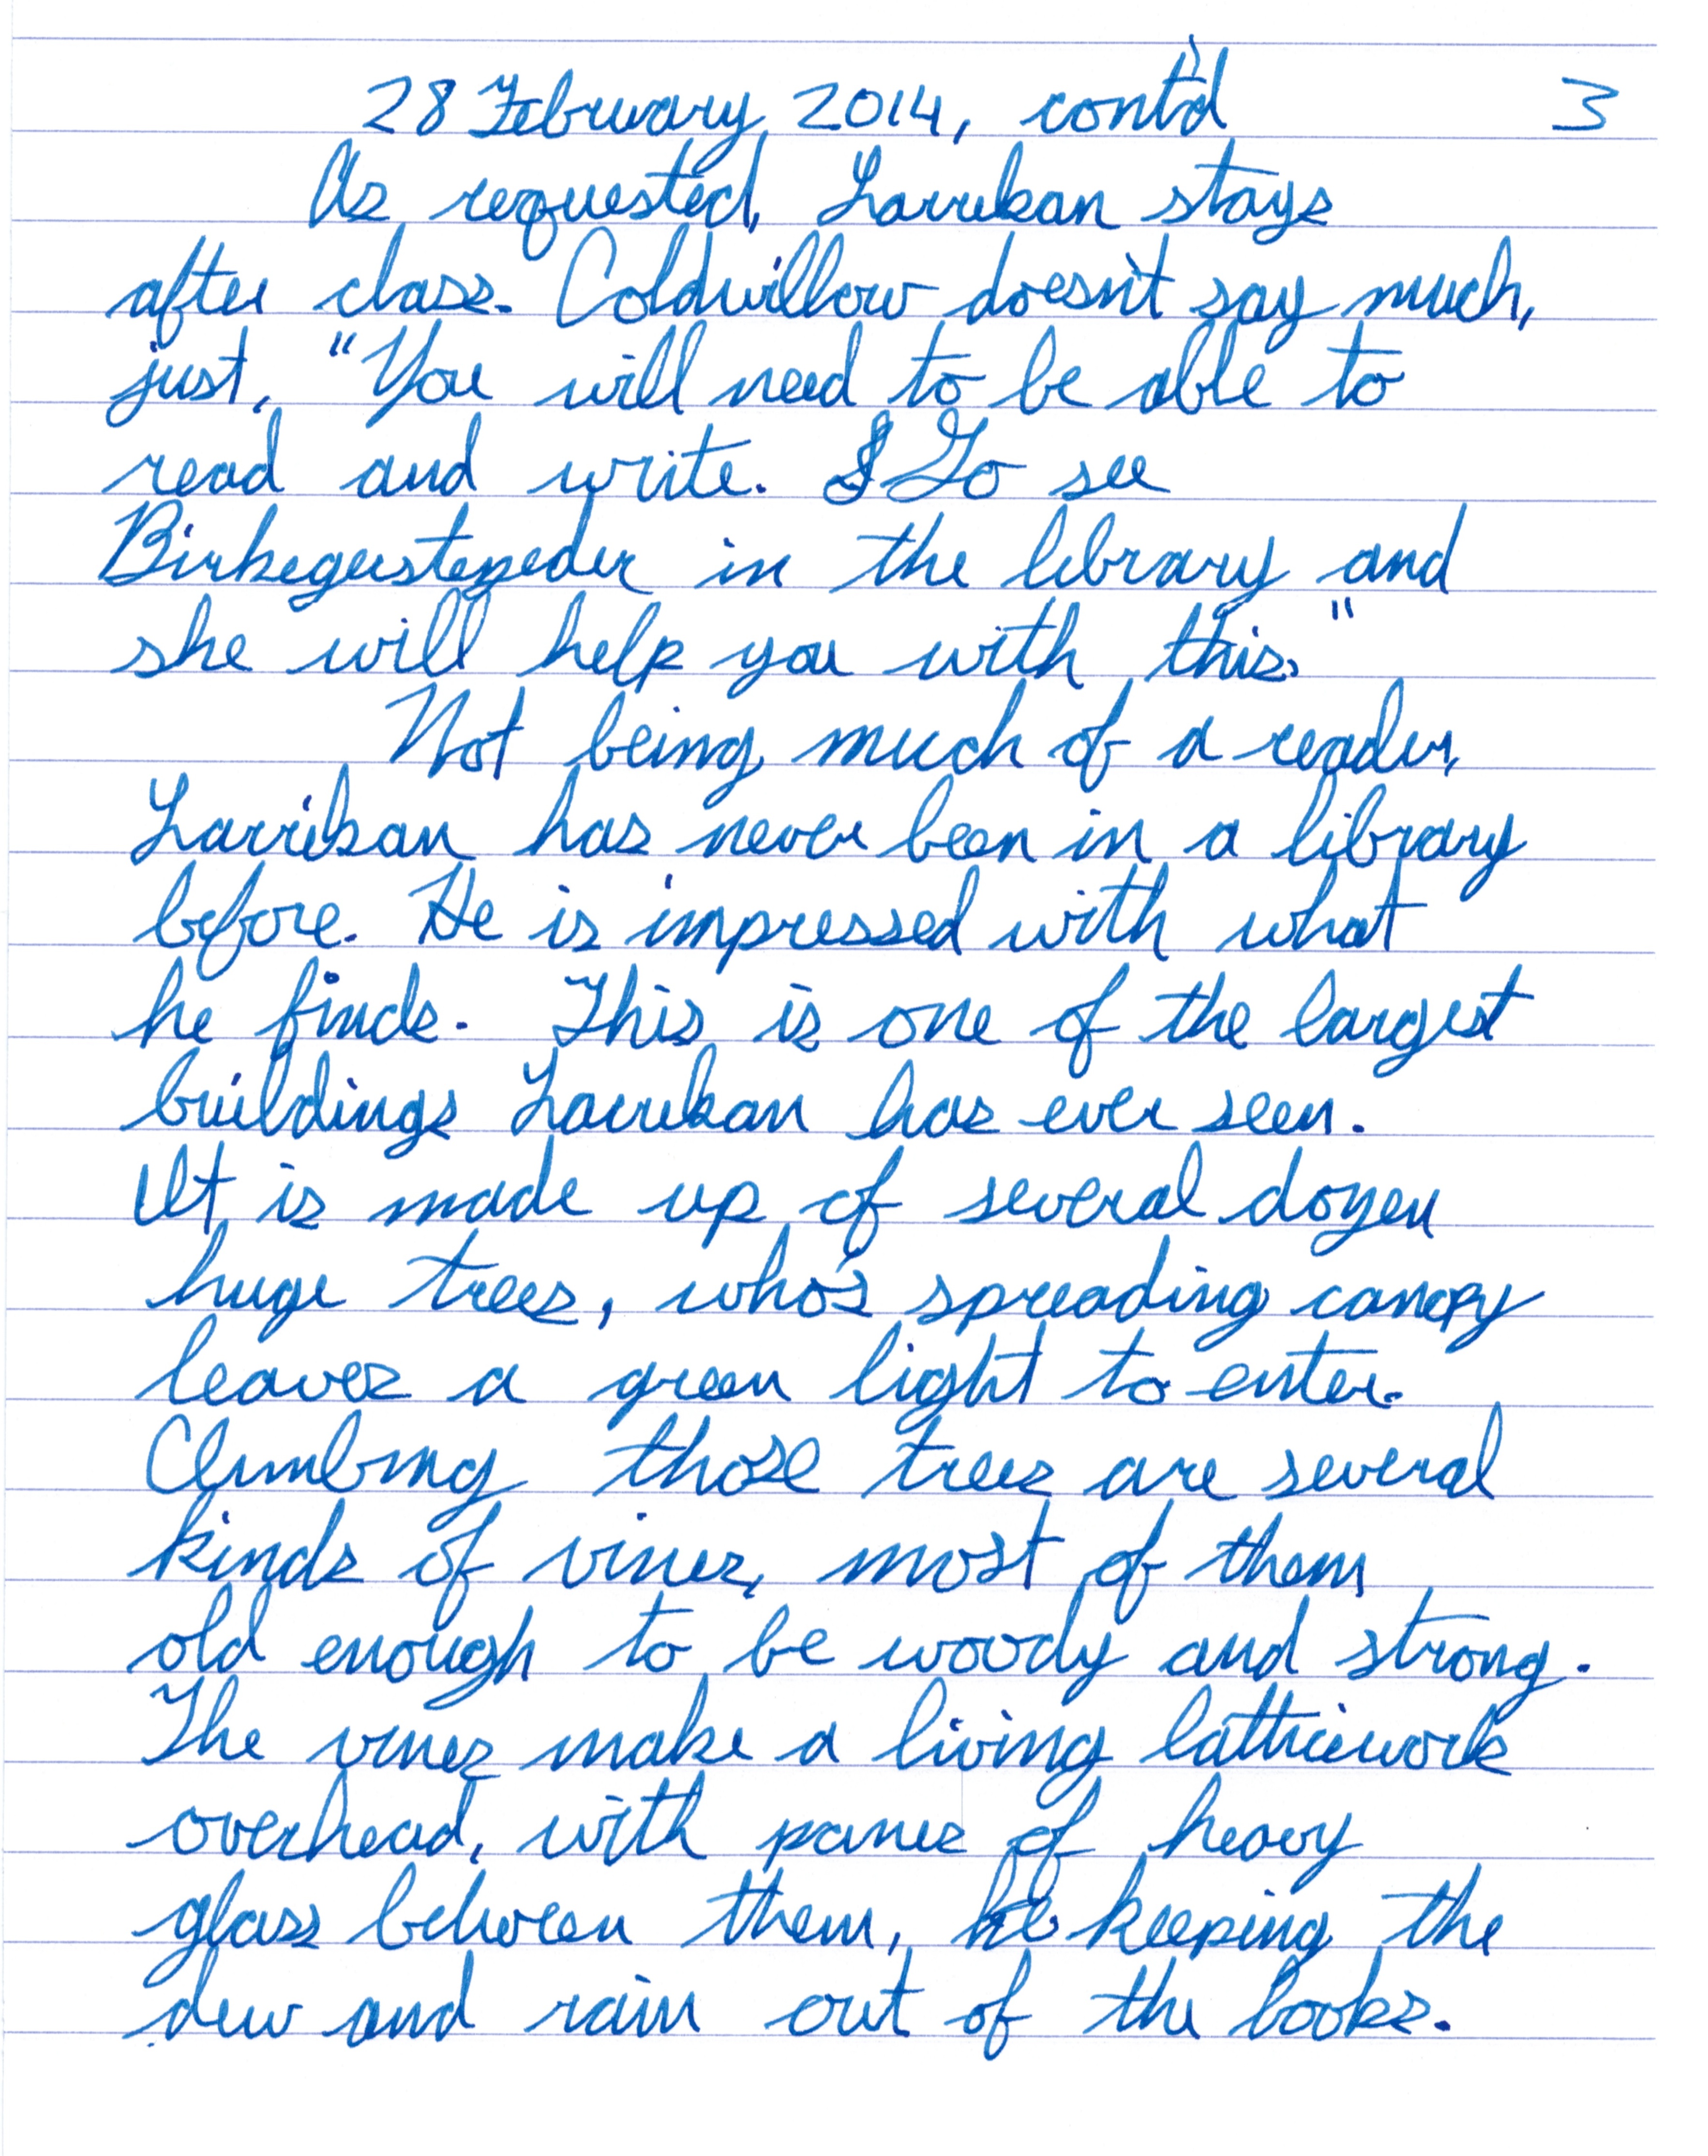 28 February, 2014, cont'd 3
As requested, Larrikan stays
after class. Coldwillow doesn't say much,
just, "You will need to be able to
read and write. Go see
Birkegerstepeder in the library and
she will help you with this."
Not being much of a reader,
Larrikan has never been in a library
before. He is impressed with what
he finds. This is one of the largest
buildings Larrikan has ever seen.
It is made up of several dozen
huge trees, who's spreading canopy
leaves a green light to enter.
Climbing those trees are several
kinds of vines, most of them
old enough to be woody and strong.
The vines make a living latticework
overhead, with panes of heavy
glass between them, keeping the
dew and rain out of the books.